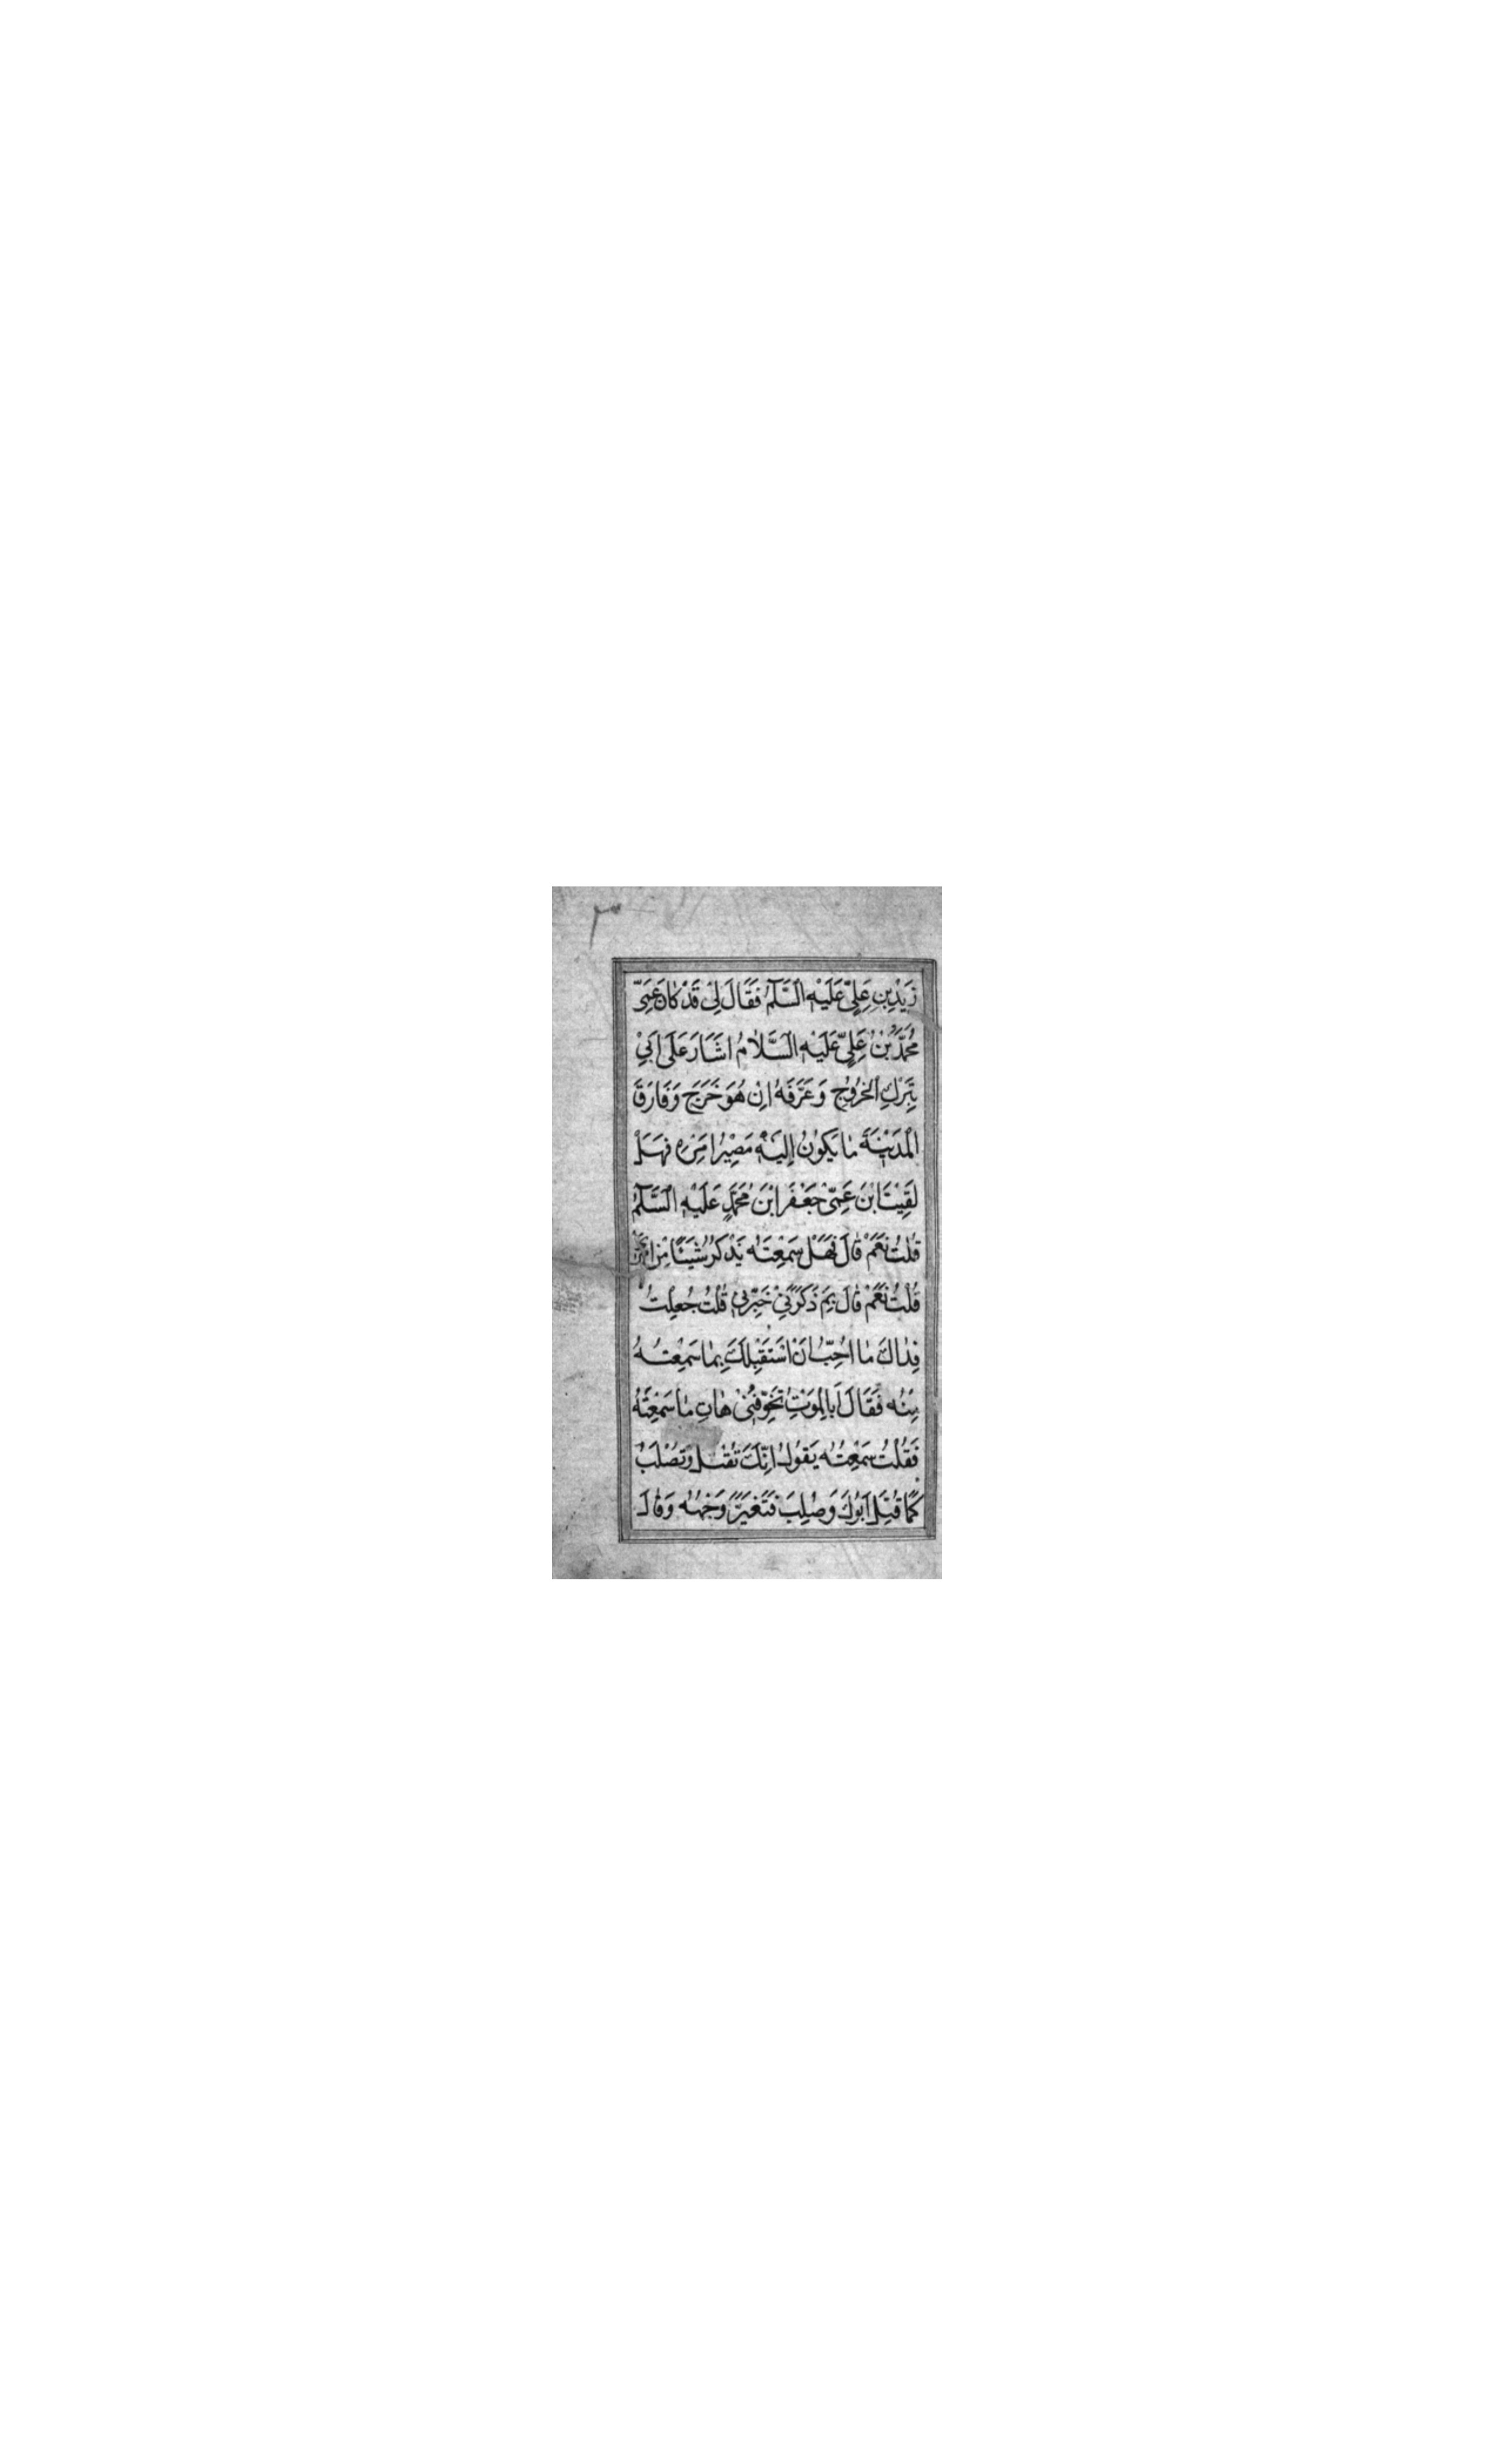 ٣
زَيْدِ بْنِ عَلِيٍّ عَلَيْهِ السَّلَمُ فَقَالَ لِي قَدْ كَانَ عَمِّي
مُحَمَّدُ بْنُ عَلِيٍّ عَلَيْهِ السَّلَامُ اَشَارَ عَلَى اَبِيْ
بِتَرْكِ الْخُرُوْجِ وَعَرَّفَهُ اِنْ هُوَ خَرَجَ وَفَارَقَ
الْمَدِيْنَةَ مَا يَكُوْنُ اِلَيْهِ مَصِيْرُ اَمْرِهِ فَهَلْ
لَقِيْتَ ابْنَ عَمِّيْ جَعْفَرَ ابْنَ مُحَمَّدٍ عَلَيْهِ السَّلَمُ
قُلْتُ نَعَمْ قَالَ فَهَلْ سَمِعْتَهُ يَذْكُرُ شَيْئًا مِنْ اَمْرِيْ
قُلْتُ نَعَمْ قَالَ بِمَ ذَكَرَنِيْ خَبِّرْنِيْ قُلْتُ جُعِلْتُ
فِدَاكَ مَا اُحِبُّ اَنْ اَسْتَقْبِلَكَ بِمَا سَمِعْتُهُ
مِنْهُ فَقَالَ اَبِالْمَوْتِ تُخَوِّفُنِيْ هَاتِ مَا سَمِعْتَهُ
فَقُلْتُ سَمِعْتُهُ يَقُوْلُ اِنَّكَ تُقْتَلُ وَتُصْلَبُ
كَمَا قُتِلَ اَبُوْكَ وَصُلِبَ فَتَغَيَّرَ وَجْهُهُ وَقَالَ